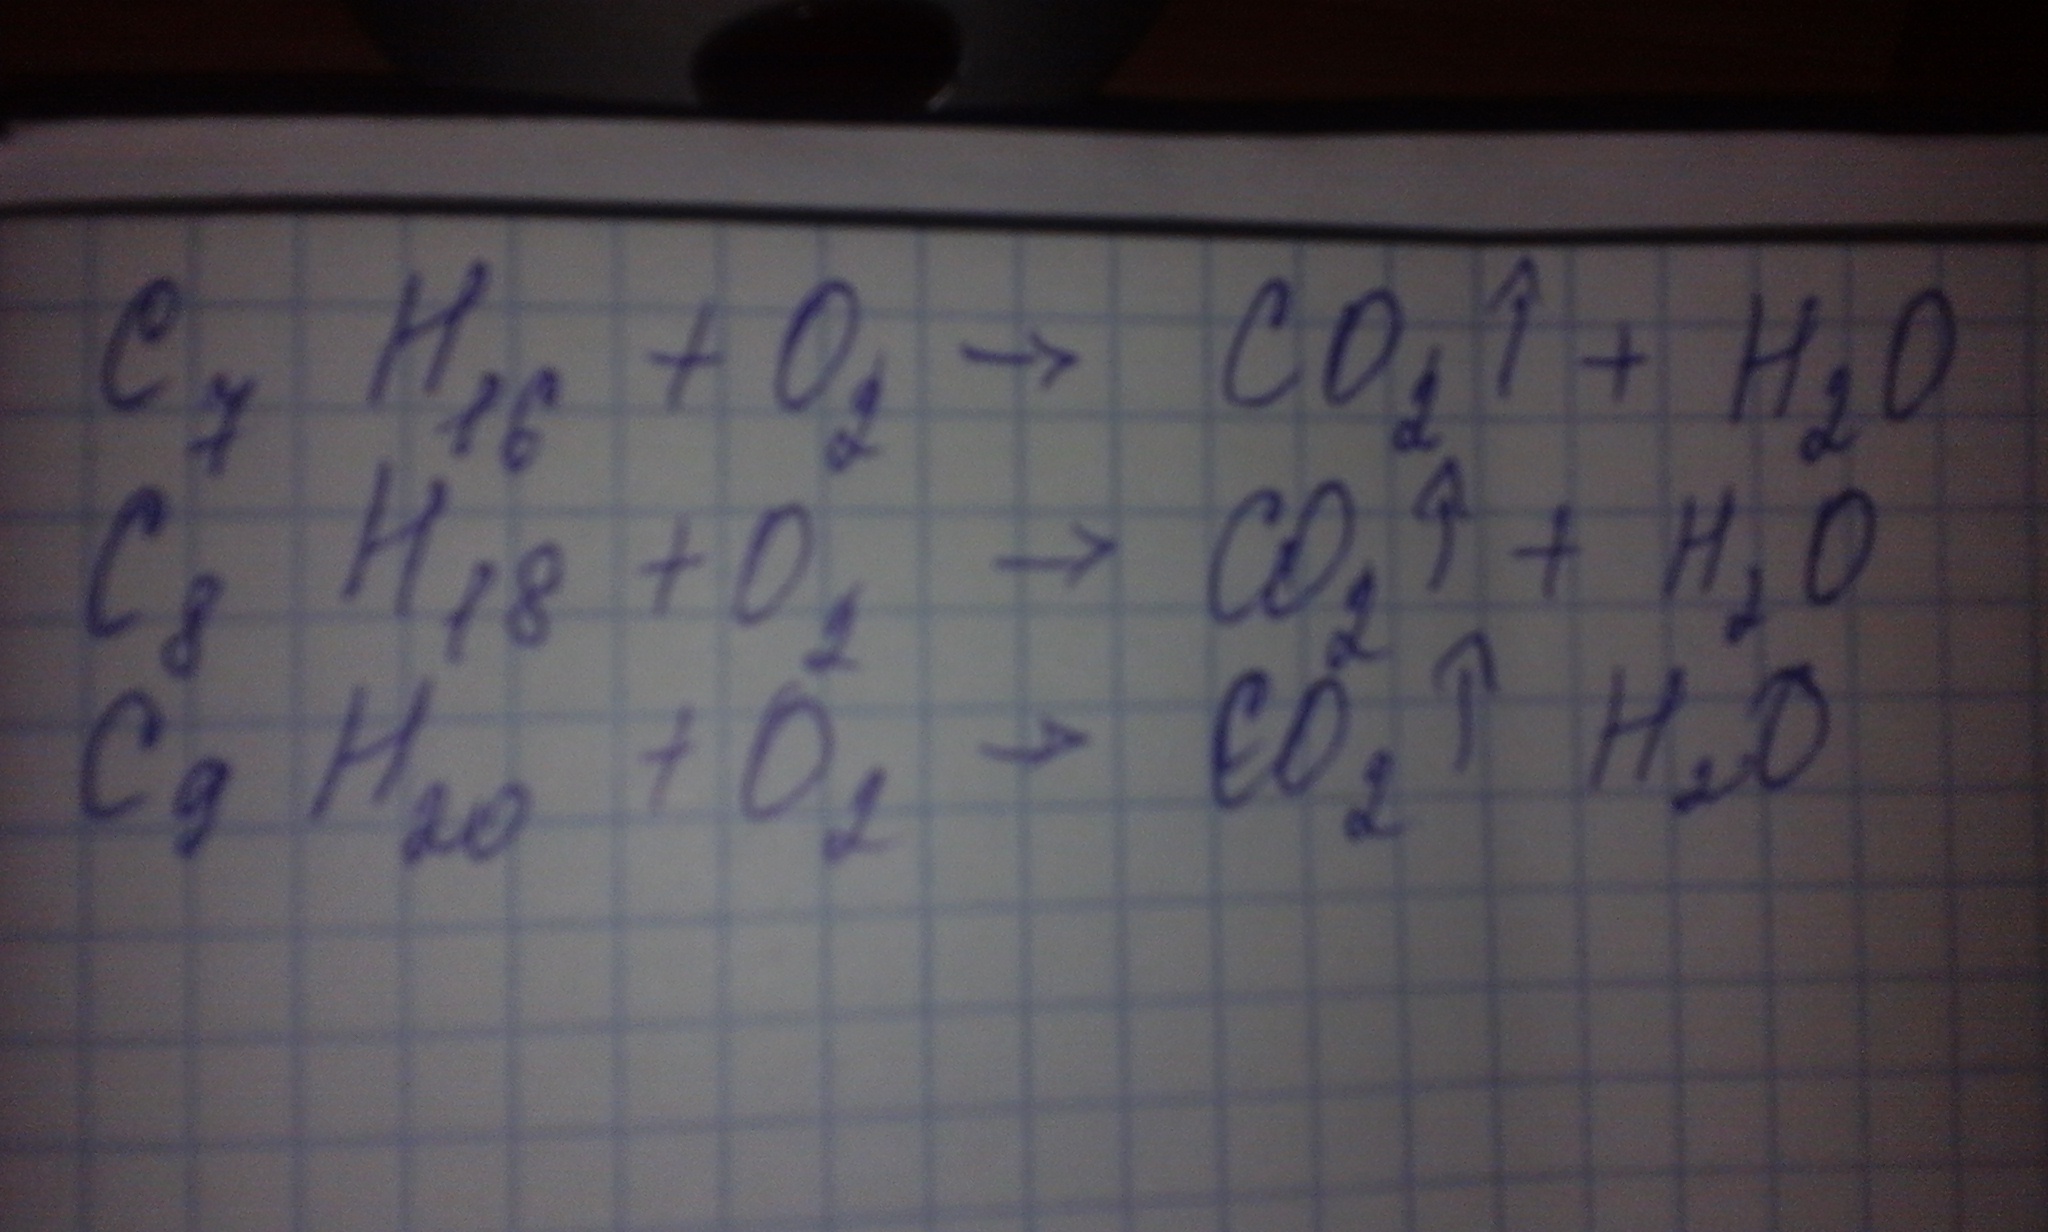 C₇ H₁₆ + O₂ → CO₂↑ + H₂O
C₈ H₁₈ + O₂ → CO₂↑ + H₂O
C₉ H₂₀ + O₂ → CO₂↑ H₂O